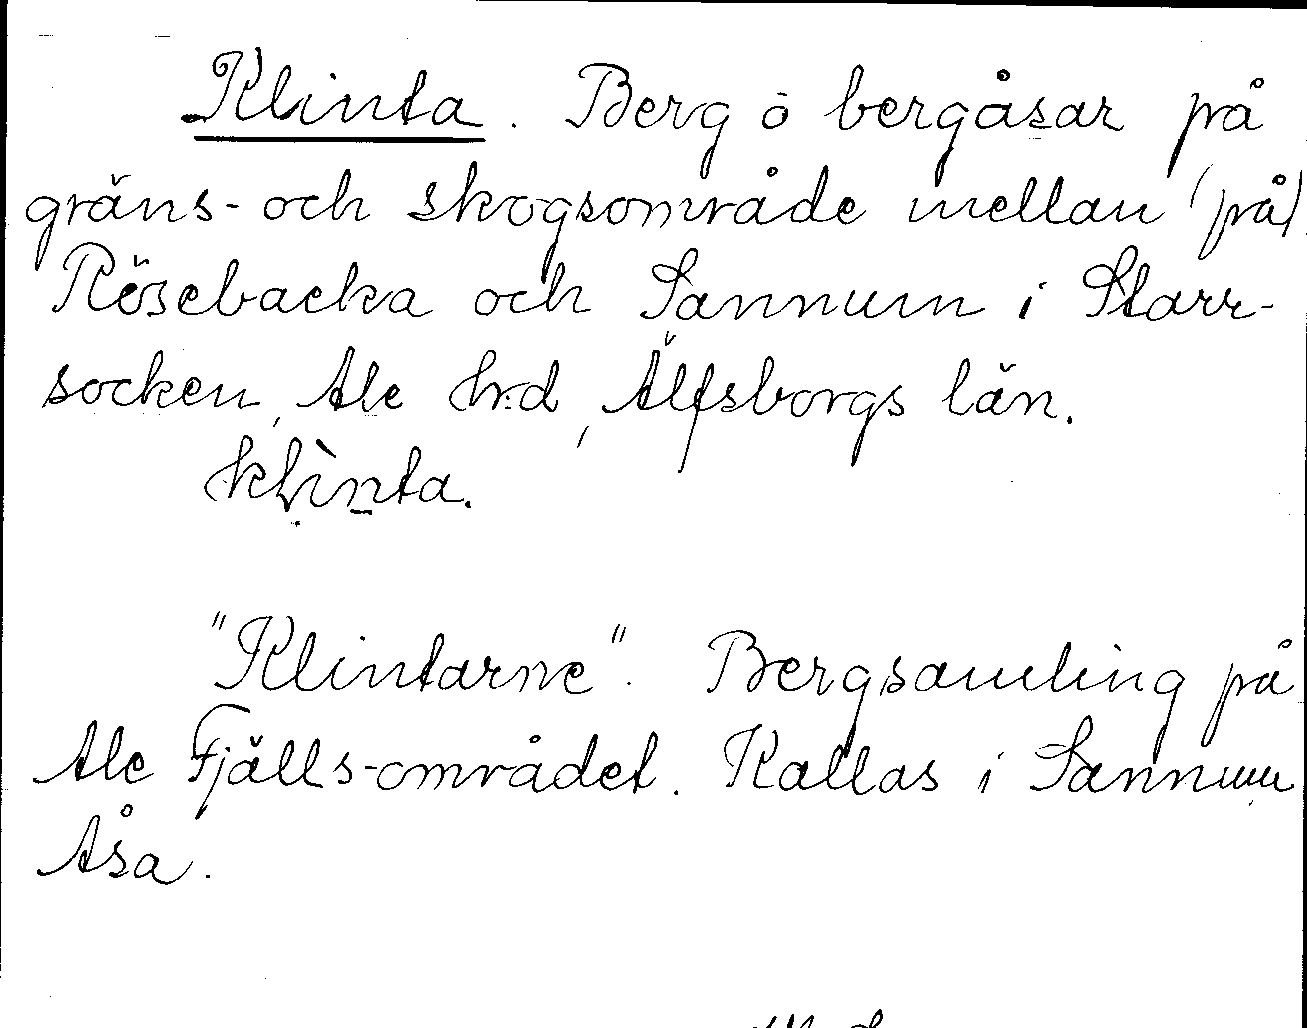 Klinta. Berg o bergåsar på
gräns- och skogsområde mellan (på)
Rösebacka och Sannum i Starr-
socken, Ale h:d, Älfsborgs län.
klìnta.
"Klintarne". Bergsamling på
Ale Fjälls-området. Kallas i Sannum
Åsa.